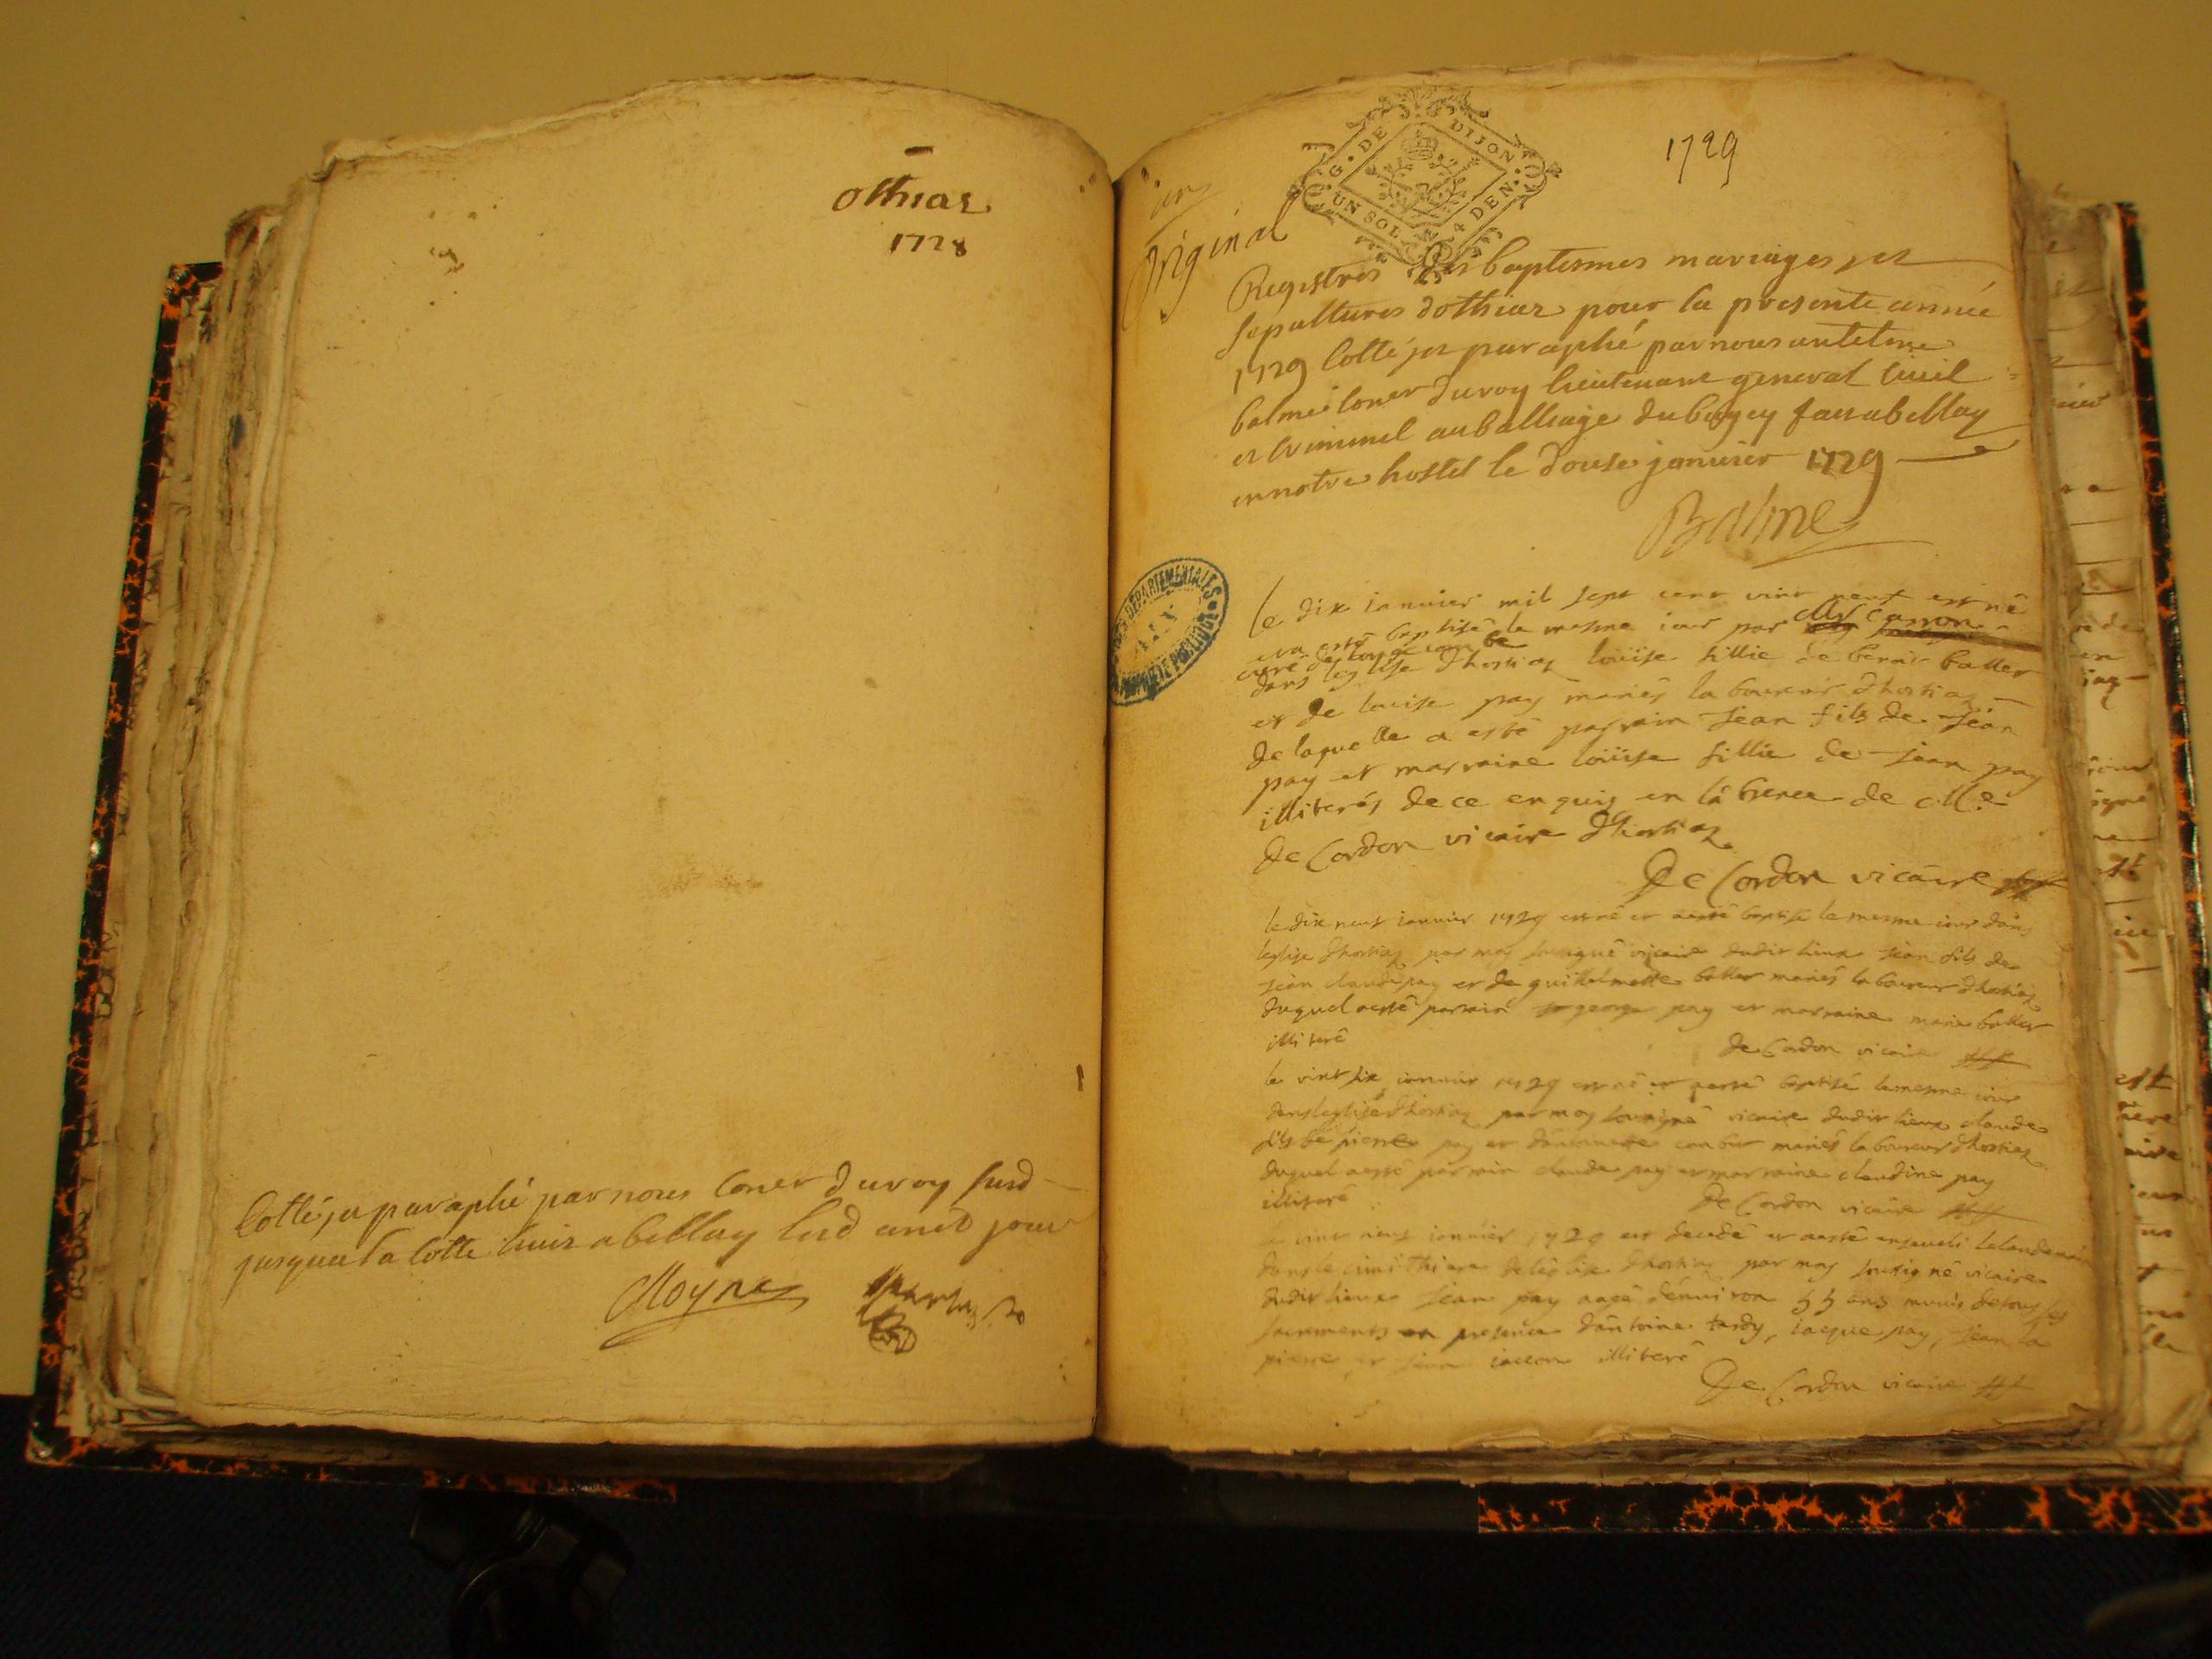 othiaz
1728
Cotté et paraphé par nous Coner du roy susd
jusqua la cotte huit a bellay lesd an et jour
Moyne
1729
G. DE DIJON
UN SOL 4 DEN.
Original
Registres des baptesmes mariages et
sepultures dothiaz pour la presente année
1729 Cotté et paraphé par nous antelme
balme Coner du roy lieutenant general civil
et criminel au balliage du bugey fait a bellay
en notre hostel le douse janvier 1729
Balme
ARCHIVES DÉPARTEMENTALES
AIN
le dix ianvier mil sept cent vint neuf est né
et a esté baptisé le mesme iour par Mr
curé de
dans leglise dhostiaz loüise fillie de benoit balley
et de louise pay mariés laboureur dhostiaz
de laquelle a esté parrain Jean fils de Jean
pay et marraine loüise fillie de Jean pay
illiterés de ce enquis en labsence de Mre
de Cordon vicaire dhostiaz
De Cordon vicaire
le dix neuf ianvier 1729 est né et aesté baptisé le mesme iour dans
leglise dhostiaz par moy soussigné vicaire dudit lieux Jean fils de
Jean claude pay et de guillelmette balley mariés laboureur dhostiaz
duquel aesté parrain george pay et marraine marie balley
illiteré
de Cordon vicaire
le vint six ianvier 1729 est né et aesté baptisé lemesme iour
dans leglise dhostiaz par moy soussigné vicaire dudit lieux claude
fils de pierre pay et dantoinette mariés laboureur dhostiaz
duquel aesté parrain claude pay et marraine claudine pay
illiteré
De Cordon vicaire
le vint neuf ianvier 1729 est decedé et aesté enseveli lelandemain
dans le cimithiere de leglise dhostiaz par moy soussigné vicaire
dudit lieux Jean pay aagé denviron 55 ans munis de tous les
sacrements en presence dantoine tardy, iacque pay, Jean la
pierre et Jean illiteré
De Cordon vicaire